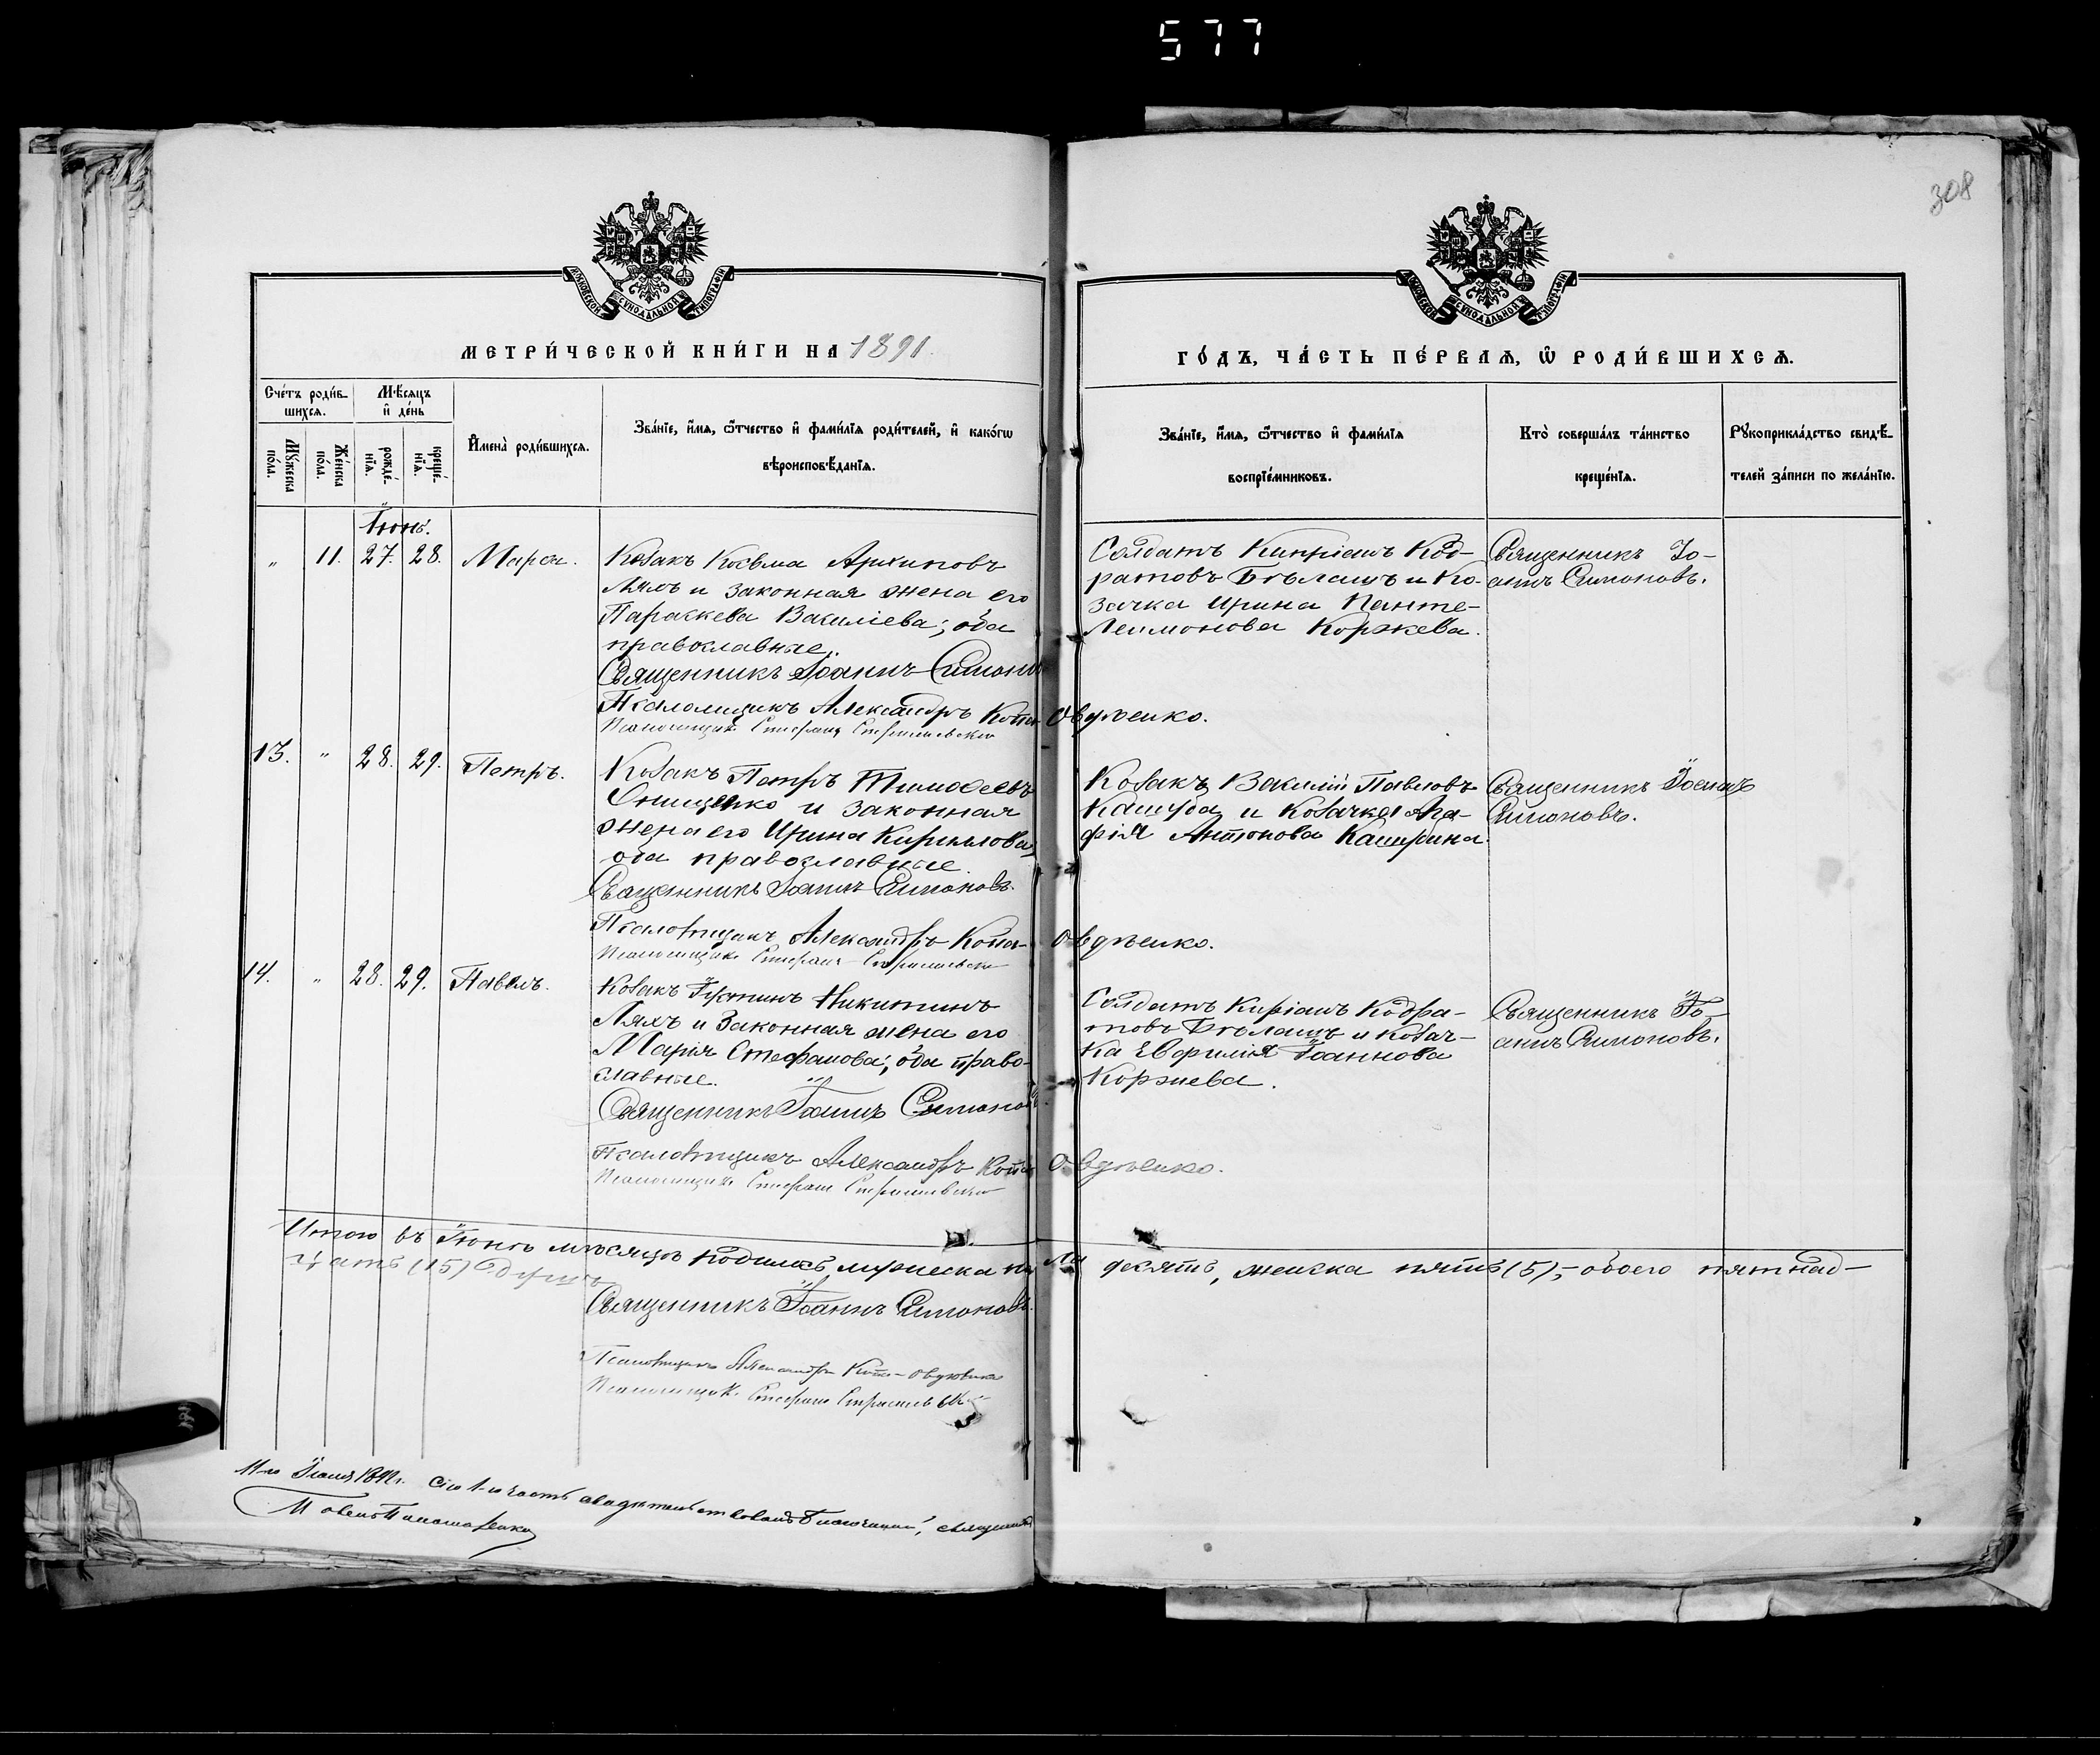 577
308
МОСКОВСКОЙ СѴНОДАЛЬНОЙ ТИПОГРАФІИ
МОСКОВСКОЙ СѴНОДАЛЬНОЙ ТИПОГРАФІИ
МЕТРИ́ЧЕСКОЙ КНИ́ГИ НА 1891
ГО́ДЪ, ЧА́СТЬ ПЕ́РВАѦ, Ѡ҆ РОДИ́ВШИХСѦ.
Сче́тъ роди́в-
шихсѧ.
Мѣ́сѧцъ
и҆ де́нь
Мꙋ́жеска по́ла.
Же́нска по́ла.
рожде́-
нїѧ.
креще́-
нїѧ.
И҆мена̀ роди́вшихсѧ.
Зва́нїе, и҆́мѧ, ѻ҆́тчество и҆ фами́лїѧ роди́телей, и҆ како́гѡ
вѣроисповѣ́данїѧ.
Зва́нїе, и҆́мѧ, ѻ҆́тчество и҆ фами́лїѧ
воспрїе́мниковъ.
Кто̀ соверша́лъ та́инство
креще́нїѧ.
Рꙋкоприкла́дство свидѣ́-
телей за́писи по жела́нїю.
Іюнь.
„ 11. 27. 28.
Козакъ Косьма Архиповъ
Ляхъ и законная жена его
Параскева Василіева; оба
православные.
Священникъ Іоаннъ Симоновъ
Псаломщикъ Александръ Копа-Овдѣенко.
Псаломщикъ Стефанъ
Солдатъ Кипріанъ Код-
ратовъ Бѣлашъ и Ко-
зачка Ирина Панте-
леимонова Коржева.
Священникъ Іо-
аннъ Симоновъ.
13. „ 28. 29. Петръ.
Козакъ Петръ Тимофеевъ
Онищенко и законная
жена его Ирина Кирилова,
оба православные.
Священникъ Іоаннъ Симоновъ.
Псаломщикъ Александръ Копа-Овдѣенко.
Псаломщикъ Стефанъ
Козакъ Василій Павловъ
Кашуба и Козачка Ага-
фія Антонова
Священникъ Іоаннъ
Симоновъ.
14. „ 28. 29. Павелъ.
Козакъ Іустинъ Никитинъ
Ляхъ и законная жена его
Марія Стефанова; оба право-
славные.
Священникъ Іоаннъ Симоновъ
Псаломщикъ Александръ Копа-Овдѣенко.
Псаломщикъ Стефанъ
Солдатъ Киріанъ Кодра-
товъ Бѣлашъ и Козач-
ка Евфимія Іоаннова
Коржева.
Священникъ Іо-
аннъ Симоновъ.
Итого въ Іюнѣ мѣсяцѣ родилось мужеска пола десять, женска пять (5), обоего пятнад-
цать (15) душъ
Священникъ Іоаннъ Симоновъ.
Псаломщикъ Александръ Копа-Овдѣенко
Псаломщикъ Стефанъ
Сію 1-ю часть свидѣтельствовалъ Благочинный, священникъ